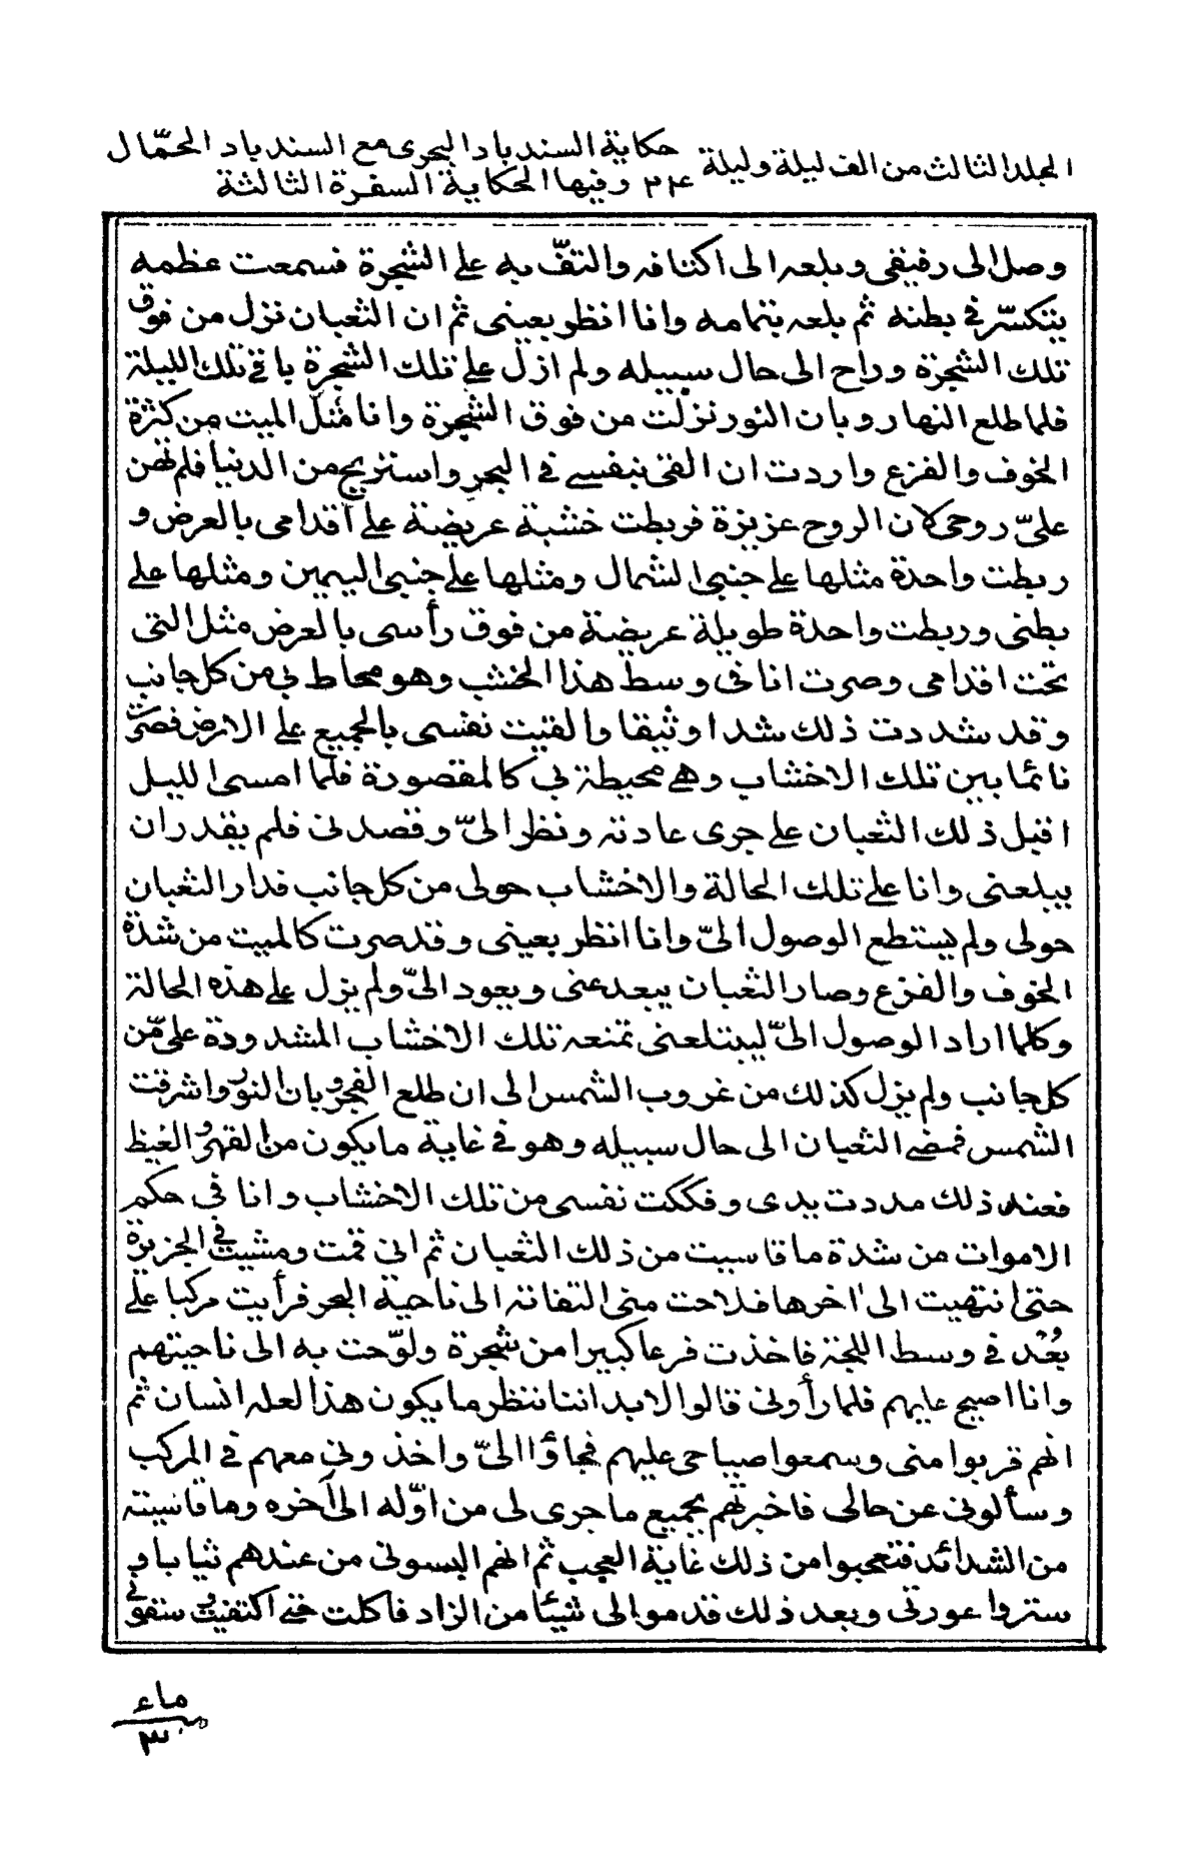 المجلد الثالث من الف ليلة وليلة ٢٤ حكاية السندباد البحرى مع السندباد الحمّال
وفيها الحكاية السفرة الثالثة
وصل الى رفيقى وبلعه الى اكتافه والتفّ به على الشجرة فسمعت عظمه
يتكسّر فى بطنه ثم بلعه بتمامه وانا انظر بعينى ثم ان الثعبان نزل من فوق
تلك الشجرة وراح الى حال سبيله ولم ازل على تلك الشجرة باقى تلك الليلة
فلما طلع النهار وبان النور نزلت من فوق الشجرة وانا مثل الميت من كثرة
الخوف والفزع واردت ان القى بنفسى فى البحر واستريح من الدنيا فلم تهن
علىّ روحى كان الروح عزيزة فربطت خشبة عريضة على اقدامى بالعرض و
ربطت واحدة مثلها على جنبى الشمال ومثلها على جنبى اليمين ومثلها على
بطنى وربطت واحدة طويلة عريضة من فوق رأسى بالعرض مثل التى
تحت اقدامى وصرت انا فى وسط هذا الخشب وهو محاط بى من كل جانب
وقد شددت ذلك شدا وثيقا والقيت نفسى بالجميع على الارض فصرت
نائما بين تلك الاخشاب وهى محيطة بى كالمقصورة فلما امسى الليل
اقبل ذلك الثعبان على جرى عادته ونظر الىّ وقصدنى فلم يقدر ان
يبلعنى وانا على تلك الحالة والاخشاب حولى من كل جانب فدار الثعبان
حولى ولم يستطع الوصول الىّ وانا انظر بعينى وقد صرت كالميت من شدة
الخوف والفزع وصار الثعبان يبعد عنى ويعود الىّ ولم يزل على هذه الحالة
وكلما اراد الوصول الىّ ليبتلعنى تمنعه تلك الاخشاب المشدودة علىّ من
كل جانب ولم يزل كذلك من غروب الشمس الى ان طلع الفجر وبان النور واشرقت
الشمس فمضى الثعبان الى حال سبيله وهو فى غاية ما يكون من القهر والغيظ
فعند ذلك مددت يدى وفككت نفسى من تلك الاخشاب وانا فى حكم
الاموات من شدة ما قاسيت من ذلك الثعبان ثم انى قمت ومشيت فى الجزيرة
حتى انتهيت الى اخرها فلاحت منى التفاتة الى ناحية البحر فرأيت مركبا على
بُعْد فى وسط اللجة فاخذت فرعا كبيرا من شجرة ولوّحت به الى ناحيتهم
وانا اصيح عليهم فلما رأونى قالوا لابد اننا ننظر ما يكون هذا لعله انسان ثم
انهم قربوا منى وسمعوا صياحى عليهم فجاؤا الىّ واخذونى معهم فى المركب
وسألونى عن حالى فاخبرتهم بجميع ما جرى لى من اوّله الى آخره وما قاسيته
من الشدائد فتعجبوا من ذلك غاية العجب ثم انهم البسونى من عندهم ثيابا و
ستروا عورتى وبعد ذلك قدموا لى شيئا من الزاد فاكلت حتى اكتفيت وسقونى
ماء
٣